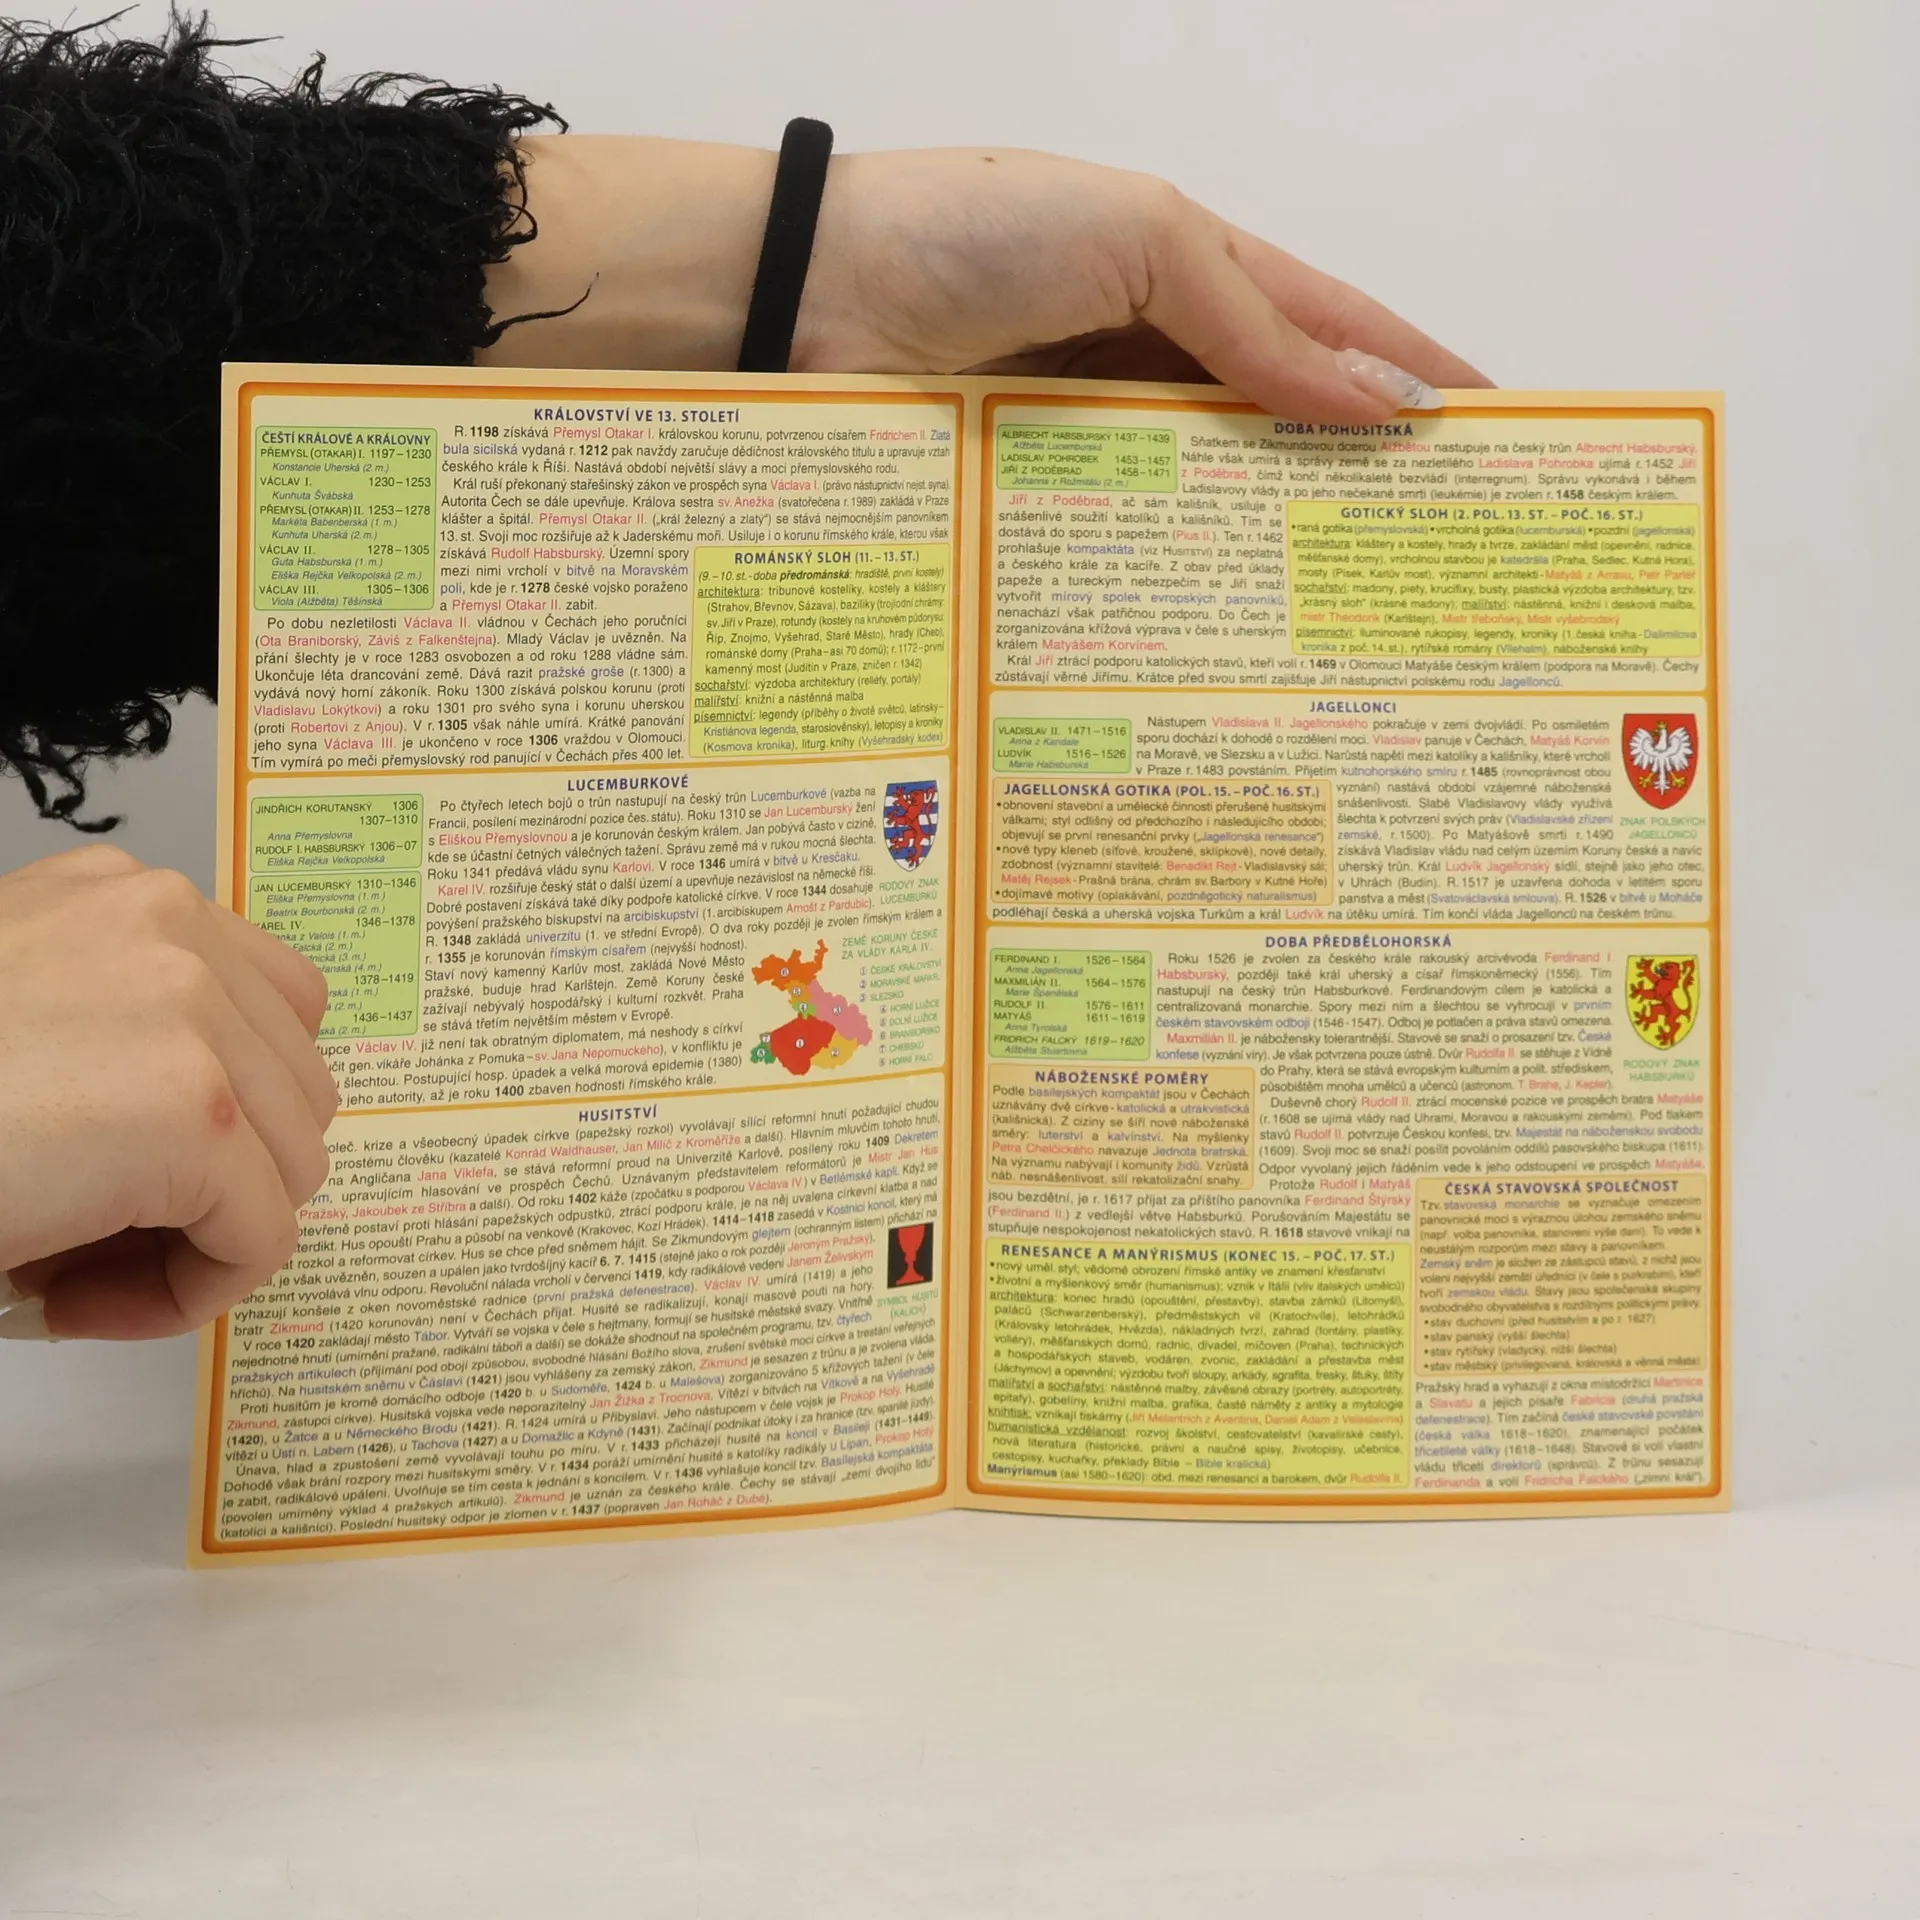 KRÁLOVSTVÍ VE 13. STOLETÍ
ČEŠTÍ KRÁLOVÉ A KRÁLOVNY
PŘEMYSL (OTAKAR) I. 1197–1230
Konstancie Uherská (2 m.)
VÁCLAV I. 1230–1253
Kunhuta Švábská
PŘEMYSL (OTAKAR) II. 1253–1278
Markéta Babenberská (1 m.)
Kunhuta Uherská (2 m.)
VÁCLAV II. 1278–1305
Guta Habsburská (1 m.)
Eliška Rejčka Velkopolská (2 m.)
VÁCLAV III. 1305–1306
Viola (Alžběta) Těšínská
R. 1198 získává Přemysl Otakar I. královskou korunu, potvrzenou císařem Fridrichem II. Zlatá
bula sicilská vydaná r. 1212 pak navždy zaručuje dědičnost královského titulu a upravuje vztah
českého krále k Říši. Nastává období největší slávy a moci přemyslovského rodu.
Král ruší překonaný stařešinský zákon ve prospěch syna Václava I. (právo nástupnictví nejst. syna).
Autorita Čech se dále upevňuje. Králova sestra sv. Anežka (svatořečena r. 1989) zakládá v Praze
klášter a špitál. Přemysl Otakar II. („král železný a zlatý“) se stává nejmocnějším panovníkem
13. st. Svoji moc rozšiřuje až k Jaderskému moři. Usiluje i o korunu římského krále, kterou však
získává Rudolf Habsburský. Územní spory
mezi nimi vrcholí v bitvě na Moravském
poli, kde je r. 1278 české vojsko poraženo
a Přemysl Otakar II. zabit.
Po dobu nezletilosti Václava II. vládnou v Čechách jeho poručníci
(Ota Braniborský, Záviš z Falkenštejna). Mladý Václav je uvězněn. Na
přání šlechty je v roce 1283 osvobozen a od roku 1288 vládne sám.
Ukončuje léta drancování země. Dává razit pražské groše (r. 1300) a
vydává nový horní zákoník. Roku 1300 získává polskou korunu (proti
Vladislavu Lokýtkovi) a roku 1301 pro svého syna i korunu uherskou
(proti Robertovi z Anjou). V r. 1305 však náhle umírá. Krátké panování
jeho syna Václava III. je ukončeno v roce 1306 vraždou v Olomouci.
Tím vymírá po meči přemyslovský rod panující v Čechách přes 400 let.
ROMÁNSKÝ SLOH (11. – 13. ST.)
(9. – 10. st. - doba předrománská: hradiště, první kostely)
architektura: tribunové kostelíky, kostely a kláštery
(Strahov, Břevnov, Sázava), baziliky (trojlodní chrámy:
sv. Jiří v Praze), rotundy (kostely na kruhovém půdorysu:
Říp, Znojmo, Vyšehrad, Staré Město), hrady (Cheb),
románské domy (Praha – asi 70 domů); r. 1172 – první
kamenný most (Juditin v Praze, zničen r. 1342)
sochařství: výzdoba architektury (reliéfy, portály)
malířství: knižní a nástěnná malba
písemnictví: legendy (příběhy o životě světců, latinsky-
Kristiánova legenda, staroslověnsky), letopisy a kroniky
(Kosmova kronika), liturg. knihy (Vyšehradský kodex)
LUCEMBURKOVÉ
JINDŘICH KORUTANSKÝ 1306
1307–1310
Anna Přemyslovna
RUDOLF I. HABSBURSKÝ 1306–07
Eliška Rejčka Velkopolská
JAN LUCEMBURSKÝ 1310–1346
Eliška Přemyslovna (1 m.)
Beatrix Bourbonská (2 m.)
KAREL IV. 1346–1378
z Valois (1 m.)
Falcká (2 m.)
(3 m.)
(4 m.)
1378–1419
(1 m.)
(2 m.)
1436–1437
(2 m.)
Po čtyřech letech bojů o trůn nastupují na český trůn Lucemburkové (vazba na
Francii, posílení mezinárodní pozice čes. státu). Roku 1310 se Jan Lucemburský žení
s Eliškou Přemyslovnou a je korunován českým králem. Jan pobývá často v cizině,
kde se účastní četných válečných tažení. Správu země má v rukou mocná šlechta.
Roku 1341 předává vládu synu Karlovi. V roce 1346 umírá v bitvě u Kresčaku.
Karel IV. rozšiřuje český stát o další území a upevňuje nezávislost na německé říši.
Dobré postavení získává také díky podpoře katolické církve. V roce 1344 dosahuje
povýšení pražského biskupství na arcibiskupství (1. arcibiskupem Arnošt z Pardubic).
R. 1348 zakládá univerzitu (1. ve střední Evropě). O dva roky později je zvolen římským králem a
r. 1355 je korunován římským císařem (nejvyšší hodnost).
Staví nový kamenný Karlův most, zakládá Nové Město
pražské, buduje hrad Karlštejn. Země Koruny české
zažívají nebývalý hospodářský i kulturní rozkvět. Praha
se stává třetím největším městem v Evropě.
Václav IV. již není tak obratným diplomatem, má neshody s církví
gen. vikáře Johánka z Pomuka – sv. Jana Nepomuckého), v konfliktu je
šlechtou. Postupující hosp. úpadek a velká morová epidemie (1380)
jeho autority, až je roku 1400 zbaven hodnosti římského krále.
RODOVÝ ZNAK
LUCEMBURKŮ
ZEMĚ KORUNY ČESKÉ
ZA VLÁDY KARLA IV.
① ČESKÉ KRÁLOVSTVÍ
② MORAVSKÉ MARKR.
③ SLEZSKO
④ HORNÍ LUŽICE
⑤ DOLNÍ LUŽICE
⑥ BRANIBORSKO
⑦ CHEBSKO
⑧ HORNÍ FALC
HUSITSTVÍ
krize a všeobecný úpadek církve (papežský rozkol) vyvolávají sílící reformní hnutí požadující chudou
prostému člověku (kazatelé Konrád Waldhauser, Jan Milíč z Kroměříže a další). Hlavním mluvčím tohoto hnutí,
na Angličana Jana Viklefa, se stává reformní proud na Univerzitě Karlově, posílený roku 1409 Dekretem
upravujícím hlasování ve prospěch Čechů. Uznávaným představitelem reformátorů je Mistr Jan Hus
Pražský, Jakoubek ze Stříbra a další). Od roku 1402 káže (zpočátku s podporou Václava IV.) v Betlémské kapli. Když se
otevřeně postaví proti hlásání papežských odpustků, ztrácí podporu krále, je na něj uvalena církevní klatba a nad
Hus opouští Prahu a působí na venkově (Krakovec, Kozí Hrádek). 1414–1418 zasedá v Kostnici koncil, který má
rozkol a reformovat církev. Hus se chce před sněmem hájit. Se Zikmundovým glejtem (ochranným listem) přichází na
je však uvězněn, souzen a upálen jako tvrdošíjný kacíř 6. 7. 1415 (stejně jako o rok později Jeroným Pražský).
smrt vyvolává vlnu odporu. Revoluční nálada vrcholí v červenci 1419, kdy radikálové vedení Janem Želivským
vyhazují konšele z oken novoměstské radnice (první pražská defenestrace). Václav IV. umírá (1419) a jeho
bratr Zikmund (1420 korunován) není v Čechách přijat. Husité se radikalizují, konají masové pouti na hory.
V roce 1420 zakládají město Tábor. Vytváří se vojska v čele s hejtmany, formují se husitské městské svazy. Vnitřně
nejednotné hnutí (umírnění pražané, radikální táboři a další) se dokáže shodnout na společném programu, tzv. čtyřech
pražských artikulech (přijímání pod obojí způsobou, svobodné hlásání Božího slova, zrušení světské moci církve a trestání veřejných
hříchů). Na husitském sněmu v Čáslavi (1421) jsou vyhlášeny za zemský zákon, Zikmund je sesazen z trůnu a je zvolena vláda.
Proti husitům je kromě domácího odboje (1420 b. u Sudoměře, 1424 b. u Malešova) zorganizováno 5 křížových tažení (v čele
Zikmund, zástupci církve). Husitská vojska vede neporazitelný Jan Žižka z Trocnova. Vítězí v bitvách na Vítkově a na Vyšehradě
(1420), u Žatce a u Německého Brodu (1421). R. 1424 umírá u Přibyslavi. Jeho nástupcem v čele vojsk je Prokop Holý. Husité
vítězí u Ústí n. Labem (1426), u Tachova (1427) a u Domažlic a Kdyně (1431). Začínají podnikat útoky i za hranice (tzv. spanilé jízdy).
Únava, hlad a zpustošení země vyvolávají touhu po míru. V r. 1433 přicházejí husité na koncil v Basileji (1431–1449).
Dohodě však brání rozpory mezi husitskými směry. V r. 1434 poráží umírnění husité s katolíky radikály u Lipan, Prokop Holý
je zabit, radikálové upáleni. Uvolňuje se tím cesta k jednání s koncilem. V r. 1436 vyhlašuje koncil tzv. Basilejská kompaktáta
(povolen umírněný výklad 4 pražských artikulů). Zikmund je uznán za českého krále. Čechy se stávají „zemí dvojího lidu“
(katolíci a kališníci). Poslední husitský odpor je zlomen v r. 1437 (popraven Jan Roháč z Dubé).
SYMBOL HUSITŮ
(KALICH)
DOBA POHUSITSKÁ
ALBRECHT HABSBURSKÝ 1437–1439
Alžběta Lucemburská
LADISLAV POHROBEK 1453–1457
JIŘÍ Z PODĚBRAD 1458–1471
Johanna z Rožmitálu (2 m.)
Sňatkem se Zikmundovou dcerou Alžbětou nastupuje na český trůn Albrecht Habsburský.
Náhle však umírá a správy země se za nezletilého Ladislava Pohrobka ujímá r. 1452 Jiří
z Poděbrad, čímž končí několikaleté bezvládí (interregnum). Správu vykonává i během
Ladislavovy vlády a po jeho nečekané smrti (leukémie) je zvolen r. 1458 českým králem.
Jiří z Poděbrad, ač sám kališník, usiluje o
snášenlivé soužití katolíků a kališníků. Tím se
dostává do sporu s papežem (Pius II.). Ten r. 1462
prohlašuje kompaktáta (viz HUSITSTVÍ) za neplatná
a českého krále za kacíře. Z obav před úklady
papeže a tureckým nebezpečím se Jiří snaží
vytvořit mírový spolek evropských panovníků,
nenachází však patřičnou podporu. Do Čech je
zorganizována křížová výprava v čele s uherským
králem Matyášem Korvínem.
Král Jiří ztrácí podporu katolických stavů, kteří volí r. 1469 v Olomouci Matyáše českým králem (podpora na Moravě). Čechy
zůstávají věrné Jiřímu. Krátce před svou smrtí zajišťuje Jiří nástupnictví polskému rodu Jagellonců.
GOTICKÝ SLOH (2. POL. 13. ST. – POČ. 16. ST.)
•raná gotika (přemyslovská) •vrcholná gotika (lucemburská) •pozdní (jagellonská)
architektura: kláštery a kostely, hrady a tvrze, zakládání měst (opevnění, radnice,
měšťanské domy), vrcholnou stavbou je katedrála (Praha, Sedlec, Kutná Hora),
mosty (Písek, Karlův most), významní architekti - Matyáš z Arrasu, Petr Parléř
sochařství: madony, piety, krucifixy, busty, plastická výzdoba architektury, tzv.
„krásný sloh“ (krásné madony); malířství: nástěnná, knižní i desková malba,
mistr Theodorik (Karlštejn), Mistr třeboňský, Mistr vyšebrodský
písemnictví: iluminované rukopisy, legendy, kroniky (1. česká kniha - Dalimilova
kronika z poč. 14. st.), rytířské romány (Vilehelm), náboženské knihy
JAGELLONCI
VLADISLAV II. 1471–1516
Anna z Kandale
LUDVÍK 1516–1526
Marie Habsburská
Nástupem Vladislava II. Jagellonského pokračuje v zemi dvojvládí. Po osmiletém
sporu dochází k dohodě o rozdělení moci. Vladislav panuje v Čechách, Matyáš Korvín
na Moravě, ve Slezsku a v Lužici. Narůstá napětí mezi katolíky a kališníky, které vrcholí
v Praze r. 1483 povstáním. Přijetím kutnohorského smíru r. 1485 (rovnoprávnost obou
vyznání) nastává období vzájemné náboženské
snášenlivosti. Slabé Vladislavovy vlády využívá
šlechta k potvrzení svých práv (Vladislavské zřízení
zemské, r. 1500). Po Matyášově smrti r. 1490
získává Vladislav vládu nad celým územím Koruny české a navíc
uherský trůn. Král Ludvík Jagellonský sídlí, stejně jako jeho otec,
v Uhrách (Budín). R. 1517 je uzavřena dohoda v letitém sporu
panstva a měst (Svatováclavská smlouva). R. 1526 v bitvě u Moháče
podléhají česká a uherská vojska Turkům a král Ludvík na útěku umírá. Tím končí vláda Jagellonců na českém trůnu.
ZNAK POLSKÝCH
JAGELLONCŮ
JAGELLONSKÁ GOTIKA (POL. 15. – POČ. 16. ST.)
•obnovení stavební a umělecké činnosti přerušené husitskými
válkami; styl odlišný od předchozího i následujícího období;
objevují se první renesanční prvky („Jagellonská renesance“)
•nové typy kleneb (síťové, kroužené, sklípkové), nové detaily,
zdobnost (významní stavitelé: Benedikt Rejt - Vladislavský sál;
Matěj Rejsek - Prašná brána, chrám sv. Barbory v Kutné Hoře)
•dojímavé motivy (oplakávání, pozdněgotický naturalismus)
DOBA PŘEDBĚLOHORSKÁ
FERDINAND I. 1526–1564
Anna Jagellonská
MAXMILIÁN II. 1564–1576
Marie Španělská
RUDOLF II. 1576–1611
MATYÁŠ 1611–1619
Anna Tyrolská
FRIDRICH FALCKÝ 1619–1620
Alžběta Stuartovna
Roku 1526 je zvolen za českého krále rakouský arcivévoda Ferdinand I.
Habsburský, později také král uherský a císař římskoněmecký (1556). Tím
nastupují na český trůn Habsburkové. Ferdinandovým cílem je katolická a
centralizovaná monarchie. Spory mezi ním a šlechtou se vyhrocují v prvním
českém stavovském odboji (1546-1547). Odboj je potlačen a práva stavů omezena.
Maxmilián II. je nábožensky tolerantnější. Stavové se snaží o prosazení tzv. České
konfese (vyznání víry). Je však potvrzena pouze ústně. Dvůr Rudolfa II. se stěhuje z Vídně
do Prahy, která se stává evropským kulturním a polit. střediskem,
působištěm mnoha umělců a učenců (astronom. T. Brahe, J. Kepler).
Duševně chorý Rudolf II. ztrácí mocenské pozice ve prospěch bratra Matyáše
(r. 1608 se ujímá vlády nad Uhrami, Moravou a rakouskými zeměmi). Pod tlakem
stavů Rudolf II. potvrzuje Českou konfesi, tzv. Majestát na náboženskou svobodu
(1609). Svoji moc se snaží posílit povoláním oddílů pasovského biskupa (1611).
Odpor vyvolaný jejich řáděním vede k jeho odstoupení ve prospěch Matyáše.
Protože Rudolf i Matyáš
jsou bezdětní, je r. 1617 přijat za příštího panovníka Ferdinand Štýrský
(Ferdinand II.) z vedlejší větve Habsburků. Porušováním Majestátu se
stupňuje nespokojenost nekatolických stavů. R. 1618 stavové vnikají na
RODOVÝ ZNAK
HABSBURKŮ
NÁBOŽENSKÉ POMĚRY
Podle basilejských kompaktát jsou v Čechách
uznávány dvě církve - katolická a utrakvistická
(kališnická). Z ciziny se šíří nové náboženské
směry: luterství a kalvinství. Na myšlenky
Petra Chelčického navazuje Jednota bratrská.
Na významu nabývají i komunity židů. Vzrůstá
náb. nesnášenlivost, sílí rekatolizační snahy.
RENESANCE A MANÝRISMUS (KONEC 15. – POČ. 17. ST.)
•nový uměl. styl; vědomé obrození římské antiky ve znamení křesťanství
•životní a myšlenkový směr (humanismus); vznik v Itálii (vliv italských umělců)
architektura: konec hradů (opouštění, přestavby), stavba zámků (Litomyšl),
paláců (Schwarzenberský), předměstských vil (Kratochvíle), letohrádků
(Královský letohrádek, Hvězda), nákladných tvrzí, zahrad (fontány, plastiky,
voliéry), měšťanských domů, radnic, divadel, míčoven (Praha), technických
a hospodářských staveb, vodáren, zvonic, zakládání a přestavba měst
(Jáchymov) a opevnění; výzdobu tvoří sloupy, arkády, sgrafita, fresky, štuky, štíty
malířství a sochařství: nástěnné malby, závěsné obrazy (portréty, autoportréty,
epitafy), gobelíny, knižní malba, grafika, časté náměty z antiky a mytologie
knihtisk: vznikají tiskárny (Jiří Melantrich z Aventina, Daniel Adam z Veleslavína)
humanistická vzdělanost: rozvoj školství, cestovatelství (kavalírské cesty),
nová literatura (historické, právní a naučné spisy, životopisy, učebnice,
cestopisy, kuchařky, překlady Bible – Bible kralická)
Manýrismus (asi 1580–1620): obd. mezi renesancí a barokem, dvůr Rudolfa II.
ČESKÁ STAVOVSKÁ SPOLEČNOST
Tzv. stavovská monarchie se vyznačuje omezením
panovnické moci s výraznou úlohou zemského sněmu
(např. volba panovníka, stanovení výše daní). To vede k
neustálým rozporům mezi stavy a panovníkem.
Zemský sněm je složen ze zástupců stavů, z nichž jsou
voleni nejvyšší zemští úředníci (v čele s purkrabím), kteří
tvoří zemskou vládu. Stavy jsou společenské skupiny
svobodného obyvatelstva s rozdílnými politickými právy.
•stav duchovní (před husitstvím a po r. 1627)
•stav panský (vyšší šlechta)
•stav rytířský (vladycký, nižší šlechta)
•stav městský (privilegovaná, královská a věnná města)
Pražský hrad a vyhazují z okna místodržící Martinice
a Slavatu a jejich písaře Fabricia (druhá pražská
defenestrace). Tím začíná české stavovské povstání
(česká válka 1618–1620), znamenající počátek
třicetileté války (1618–1648). Stavové si volí vlastní
vládu třiceti direktorů (správců). Z trůnu sesazují
Ferdinanda a volí Fridricha Falckého („zimní král“).